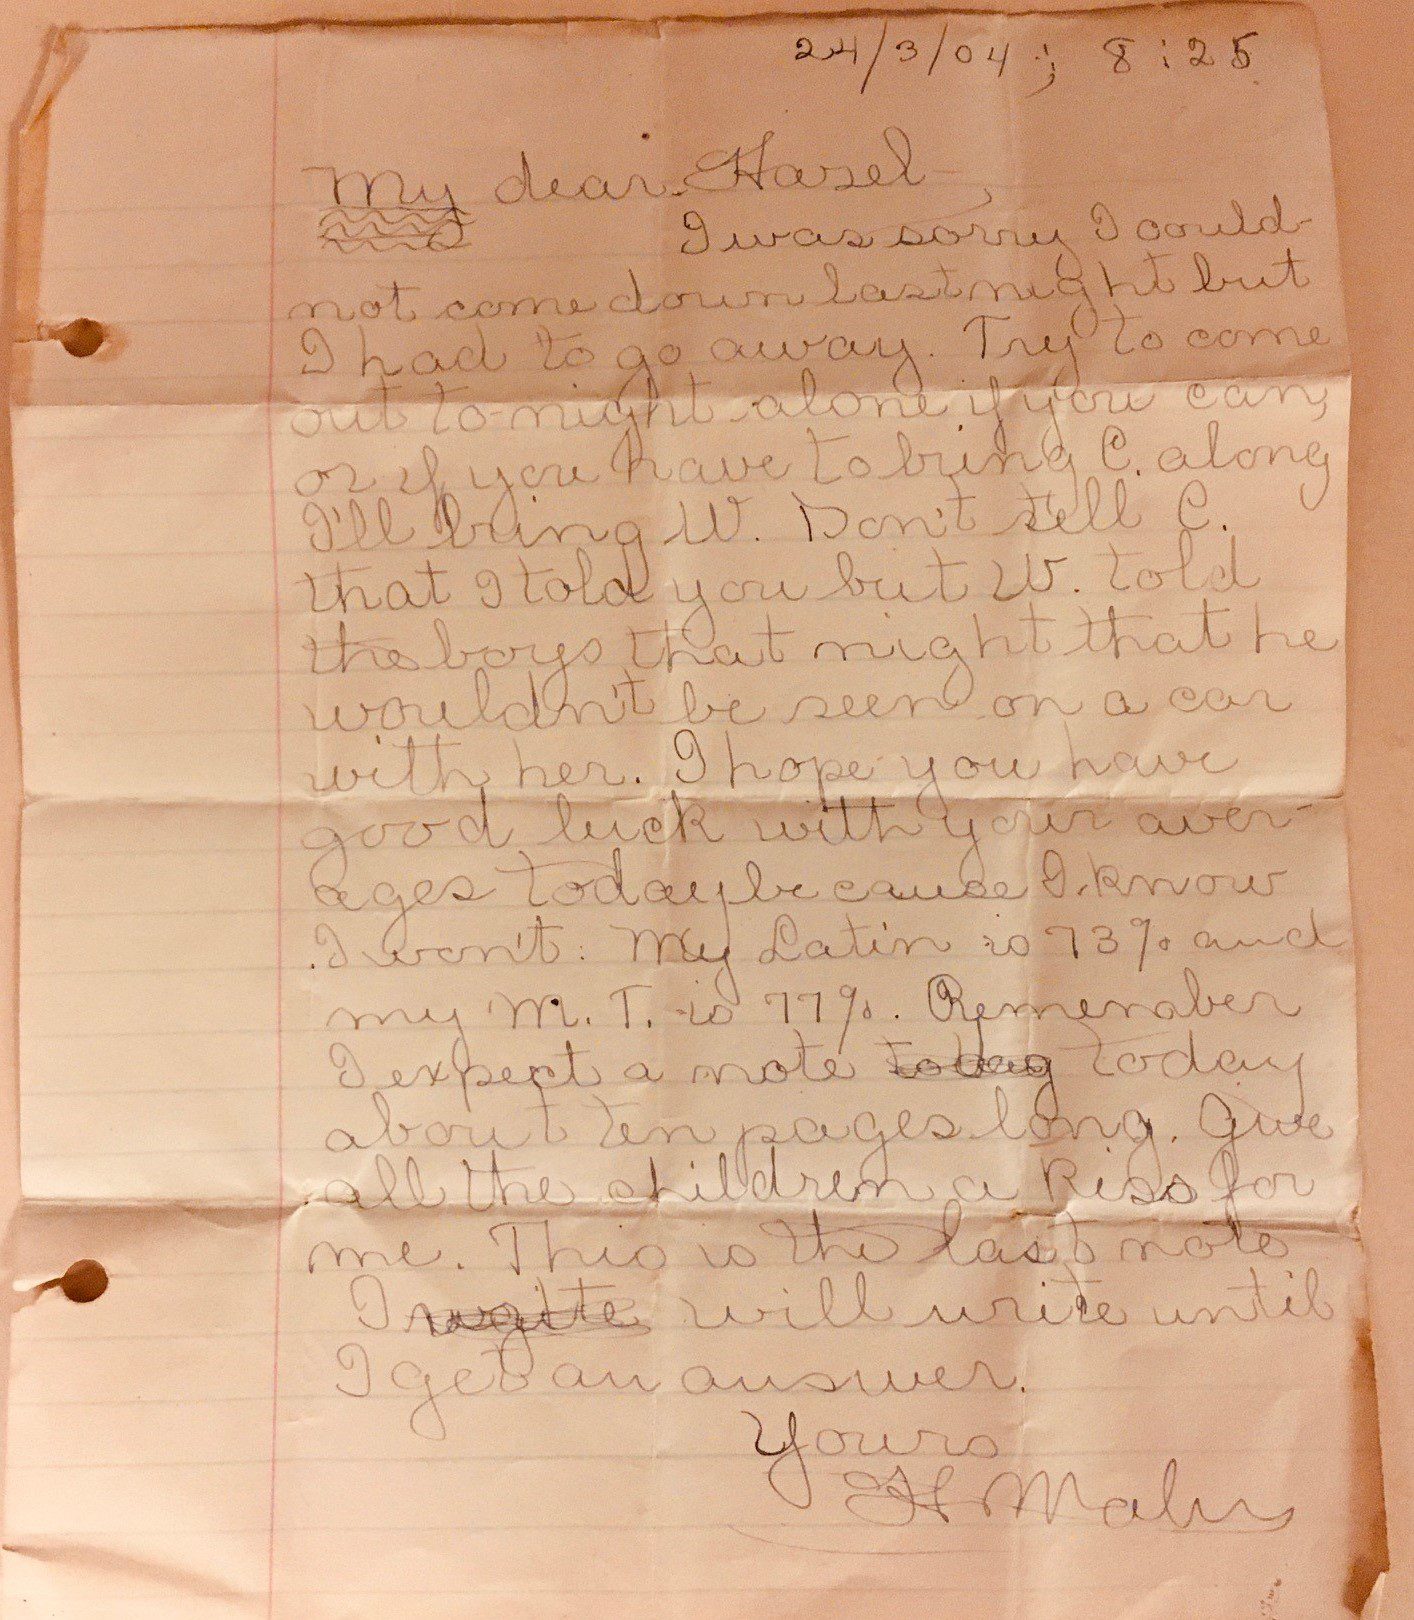 24/3/04 ; 8:25
My dear Hazel,
I was sorry I could
not come down last night but
I had to go away. Try to come
out to-night alone if you can,
or if you have to bring C. along
I'll bring W. Don't tell C.
that I told you but W. told
the boys that night that he
wouldn't be seen on a car
with her. I hope you have
good luck with your aver-
ages today because I know
I won't. My Latin is 73% and
my M. T. is 77%. Remember
I expect a note today today
about ten pages long. Give
all the children a kiss for
me. This is the last note
I write will write until
I get an answer.
Yours
H Mahr